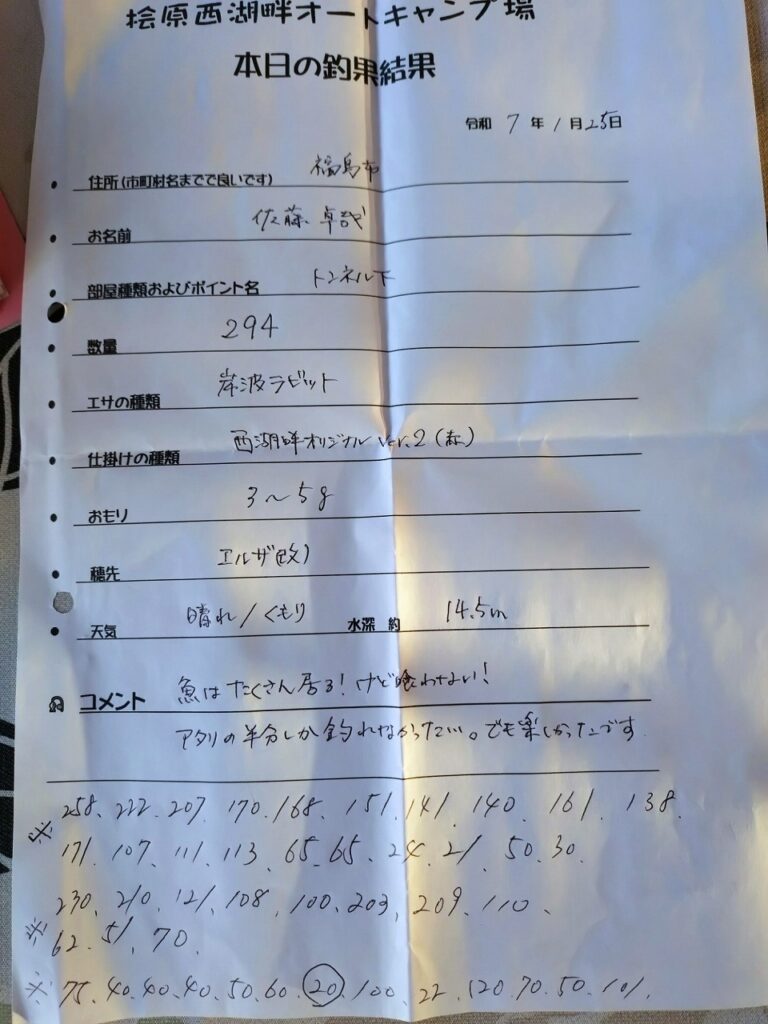 桧原西湖畔オートキャンプ場
本日の釣果結果
令和 7 年 1 月 25日
・ 住所(市町村名までで良いです) 福島市
・ お名前 佐藤 卓哉
・ 部屋種類およびポイント名 トンネル下
・ 数量 294
・ エサの種類 岸波ラビット
・ 仕掛けの種類 西湖畔オリジナル ver.2 (赤)
・ おもり 3〜5g
・ 穂先 エルザ(改)
・ 天気 晴れ/くもり 水深 約 14.5m
コメント 魚はたくさん居る!けど喰わせない!
アタリの半分しか釣れなかった…。でも楽しかったです
※ 258、222、207、170、168、151、141、140、161、138、
171、107、111、113、65、65、24、21、50、30、
※ 230、210、121、108、100、203、209、110、
62、51、70、
※ 75、40、40、40、50、60、20、100、22、120、70、50、101、